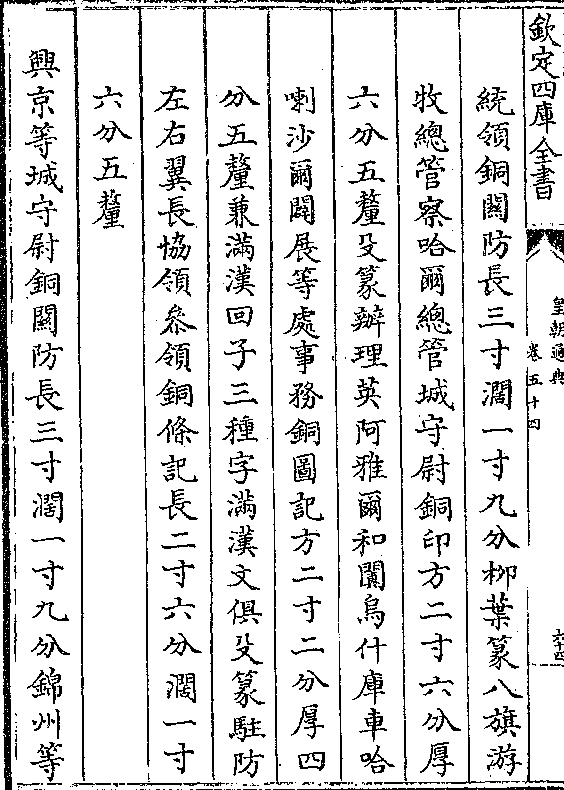 欽定四庫全書
皇朝通典
卷五十四
六十四
統領銅關防長三寸濶一寸九分栁葉篆八旗游
牧總管察哈爾總管城守尉銅印方二寸六分厚
六分五釐殳篆辦理英阿雅爾和闐烏什庫車哈
喇沙爾闢展等處事務銅圖記方二寸二分厚四
分五釐兼滿漢回子三種字滿漢文俱殳篆駐防
左右翼長協領叅領銅條記長二寸六分濶一寸
六分五釐
興京等城守尉銅關防長三寸濶一寸九分錦州等